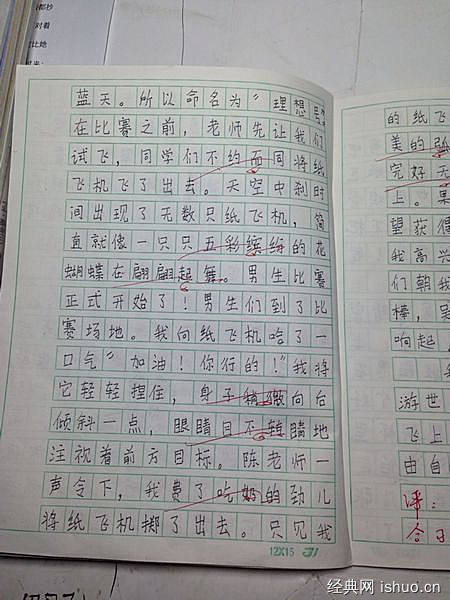 蓝天。所以命名为"理想号
在比赛之前，老师先让我们
试飞，同学们不约而同将纸
飞机飞了出去。天空中刹时
间出现了无数只纸飞机，简
直就像一只只五彩缤纷的花
蝴蝶在翩翩起舞。男生比赛
正式开始了！男生们到了比
赛场地。我向纸飞机哈了一
口气"加油！你行的！"我将
它轻轻捏住，身子稍微向后
倾斜一点，眼睛目不转睛地
注视着前方目标。陈老师一
声令下，我费了吃奶的劲儿
将纸飞机掷了出去。只见我
12X15 31
的纸飞
美的
完好无
上。果
望获得
我高兴
们朝我
棒，是
响起，
我
游世
飞上
由自
评：
今日
都杪
对着
比她
经典网 ishuo.cn